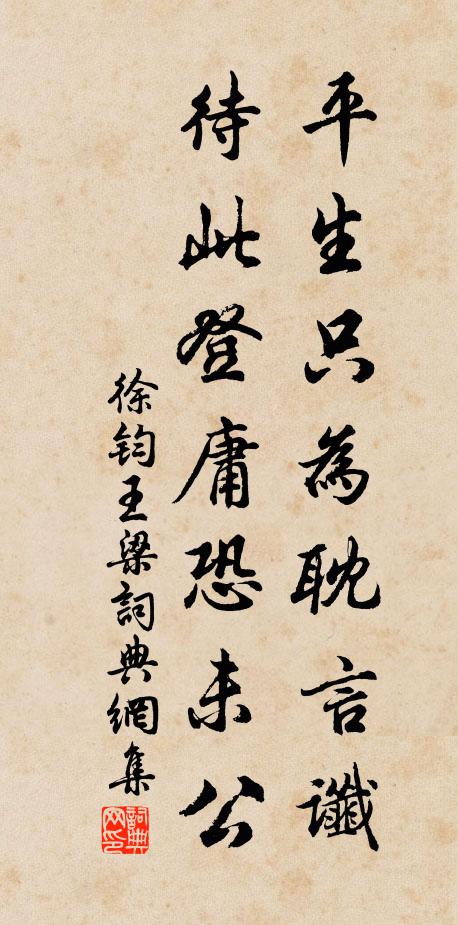 平生只為耽言讖
待此登庸恐未公
徐鈞王梁詞典網集
詞典網印